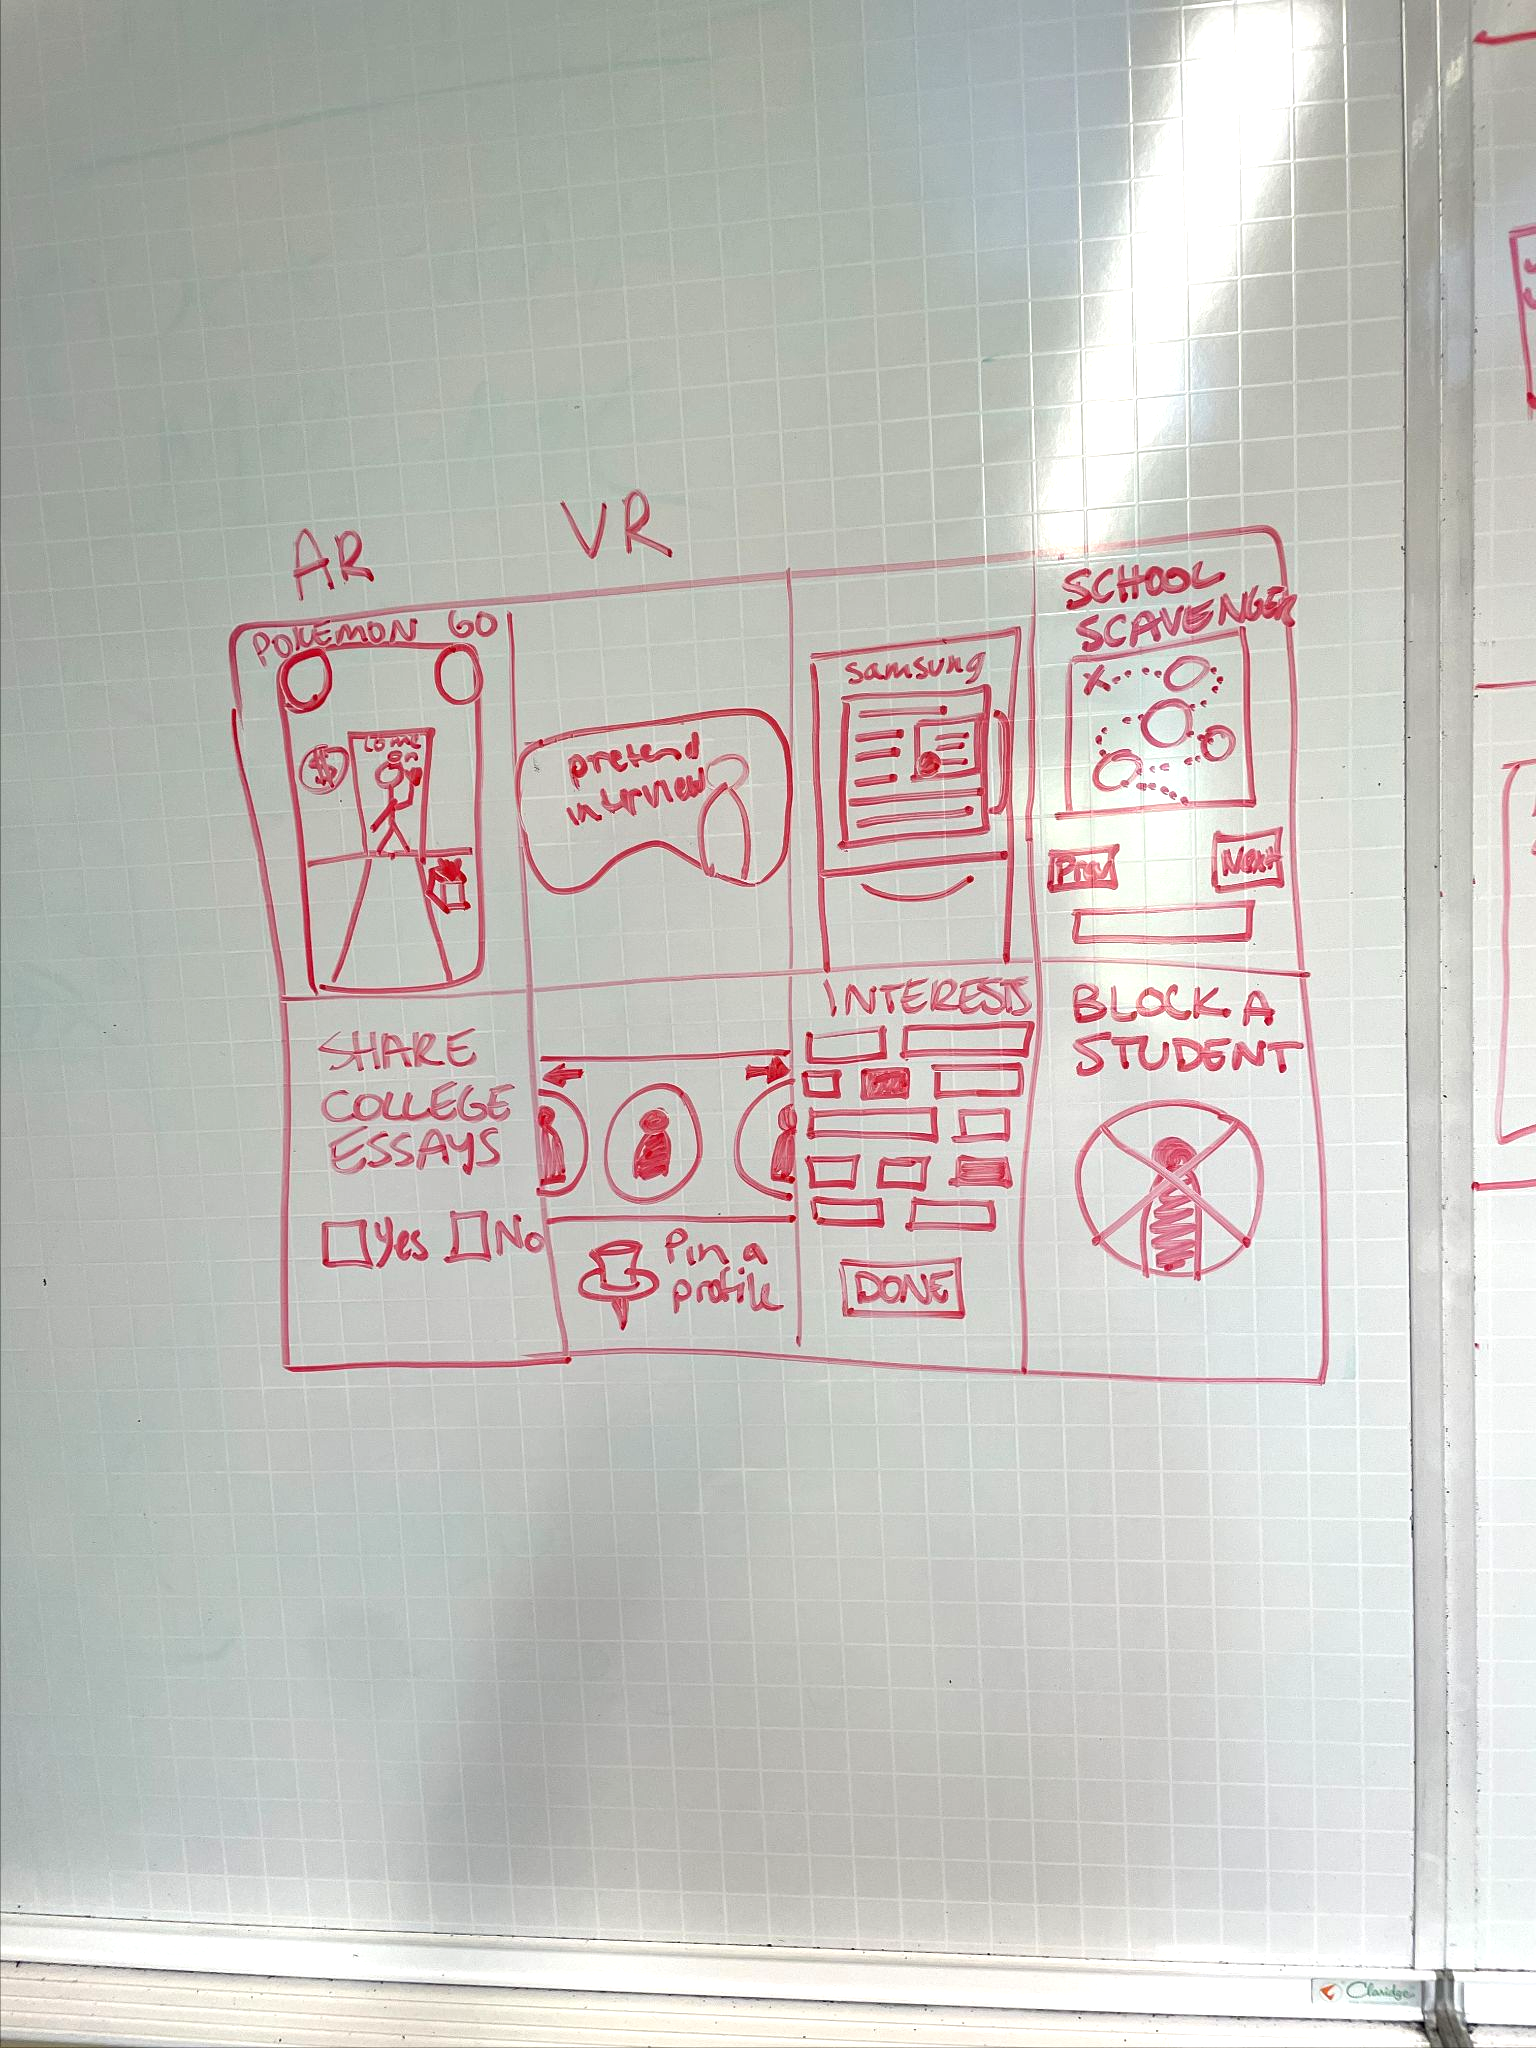 AR
VR
POKEMON GO
$
come
on
pretend
interview
samsung
SCHOOL
SCAVENGER
X
Prev
Next
SHARE
COLLEGE
ESSAYS
Yes
No
Pin a
profile
INTERESTS
DONE
BLOCK A
STUDENT
Claridge